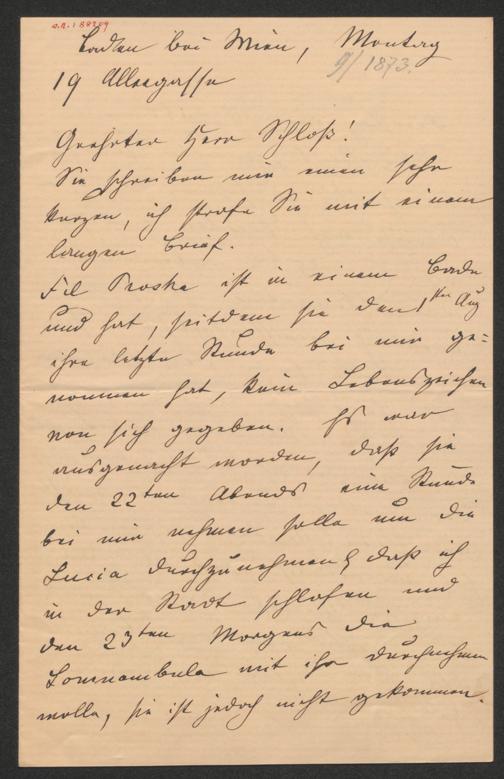 Baden bei Wien, Montag
9/1873.
19 Alleegasse
Geehrter Herr Schloß!
Sie schreiben mir einen sehr
kurzen, ich strafe Sie mit einem
langen Brief.
Frl Proska ist in einem Bade
und hat, seitdem sie den 1ten Aug
ihre letzte Stunde bei mir ge=
nommen hat, kein Lebenszeichen
von sich gegeben. Es war
ausgemacht worden, daß sie
den 22ten Abends eine Stunde
bei mir nehmen solle um die
Lucia durchzunehmen & daß ich
in der Stadt schlafen und
den 23ten Morgens die
Somnambula mit ihr durchnehmen
wolle, sie ist jedoch nicht gekommen.